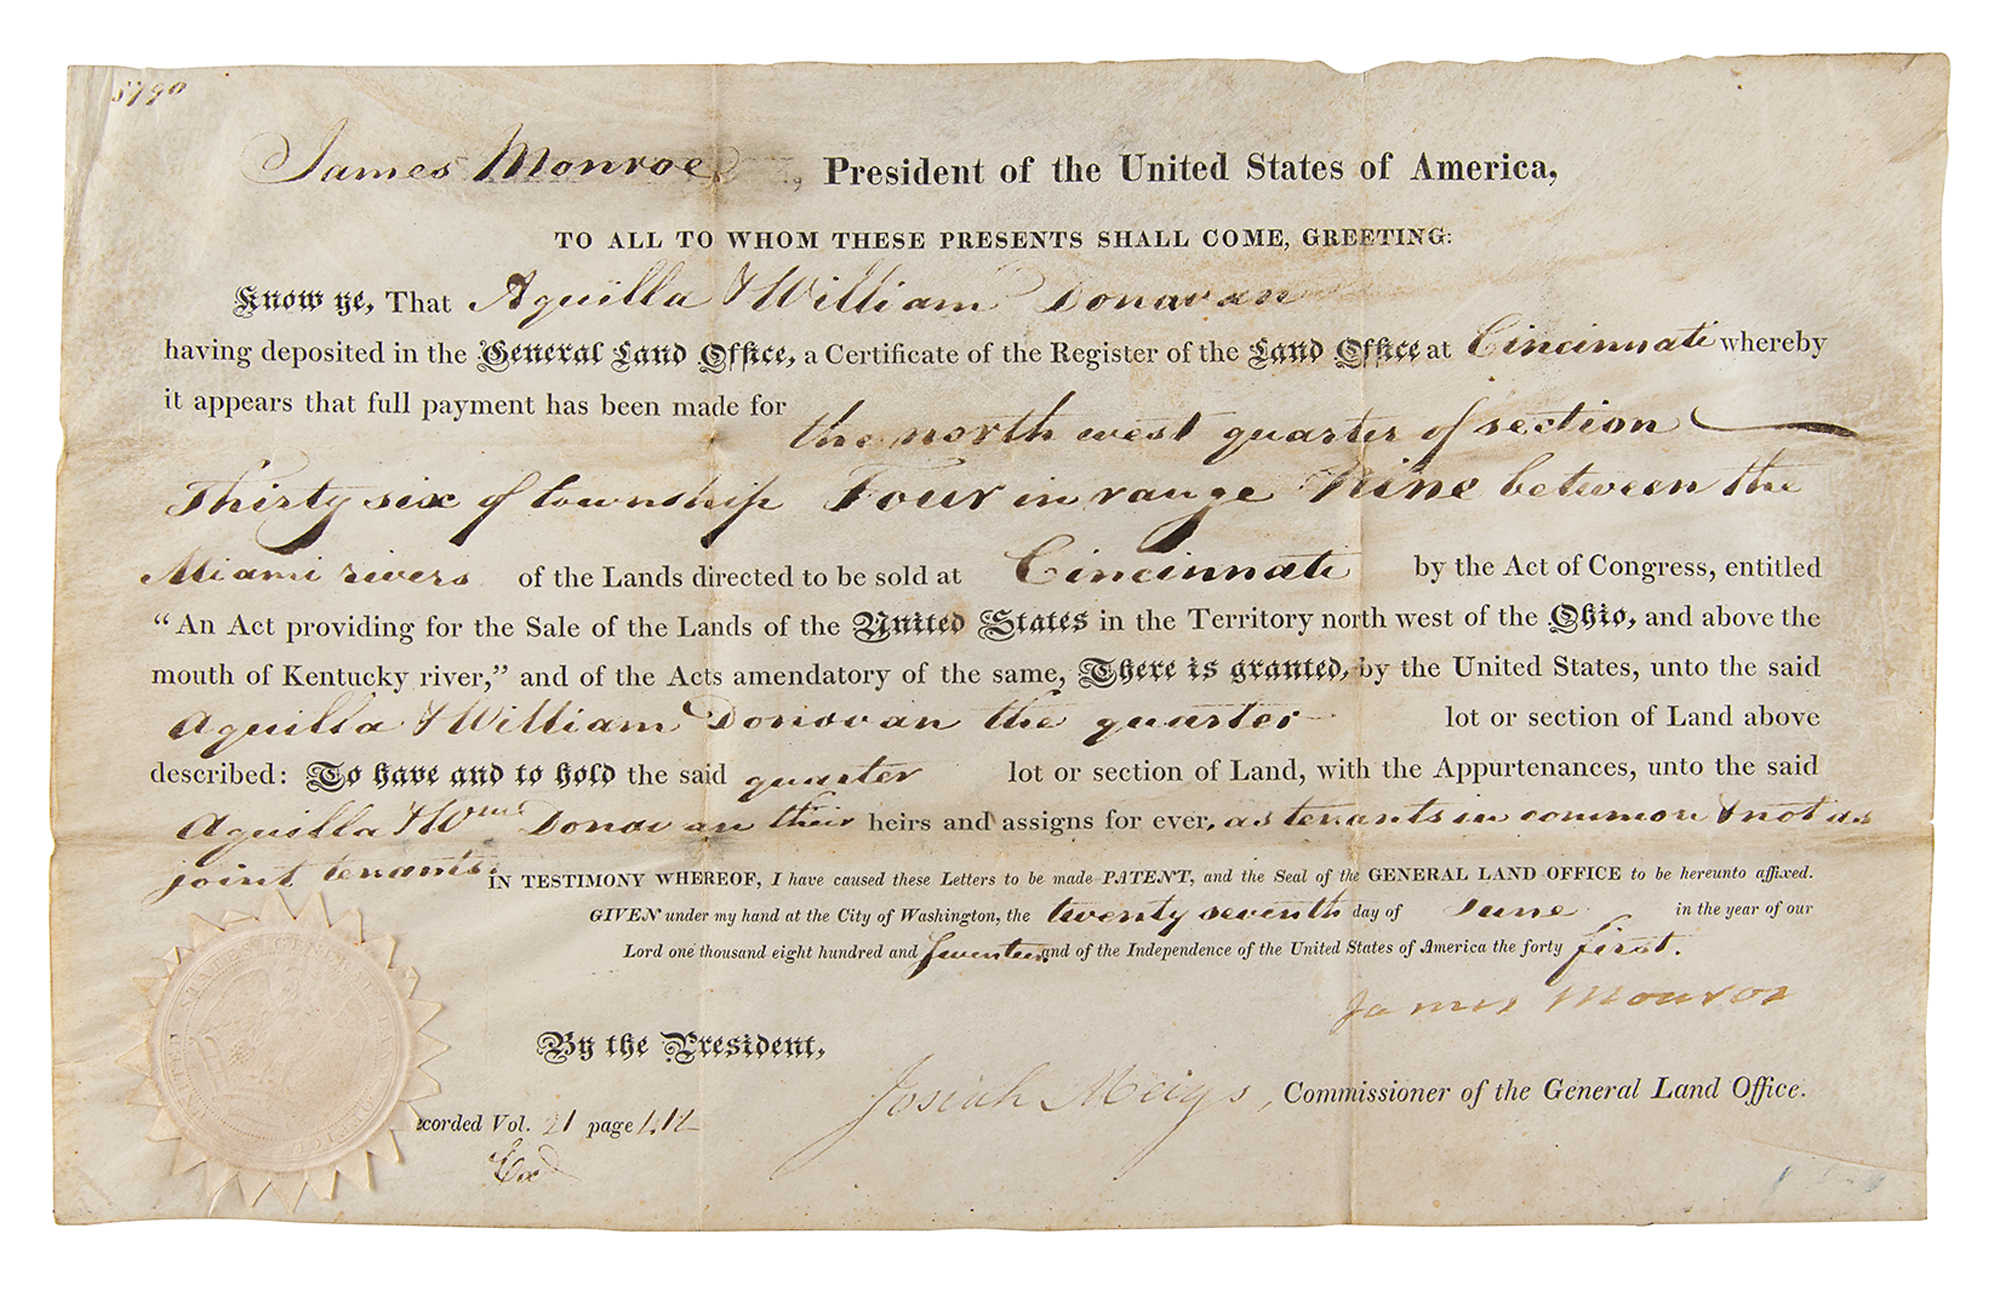 5790
James Monroe, President of the United States of America,
TO ALL TO WHOM THESE PRESENTS SHALL COME, GREETING:
Know ye, That Aquilla & William Donavan
having deposited in the General Land Office, a Certificate of the Register of the Land Office at Cincinnati whereby
it appears that full payment has been made for the north west quarter of section
Thirty six of township Four in range Nine between the
Miami rivers of the Lands directed to be sold at Cincinnati by the Act of Congress, entitled
“An Act providing for the Sale of the Lands of the United States in the Territory north west of the Ohio, and above the
mouth of Kentucky river,” and of the Acts amendatory of the same, There is granted, by the United States, unto the said
Aquilla & William Donovan the quarter lot or section of Land above
described: To have and to hold the said quarter lot or section of Land, with the Appurtenances, unto the said
Aquilla & Wm Donavan their heirs and assigns for ever, as tenants in common & not as
joint tenants. IN TESTIMONY WHEREOF, I have caused these Letters to be made PATENT, and the Seal of the GENERAL LAND OFFICE to be hereunto affixed.
GIVEN under my hand at the City of Washington, the twenty seventh day of June in the year of our
Lord one thousand eight hundred and seventeen and of the Independence of the United States of America the forty first.
James Monroe
By the President,
Josiah Meigs, Commissioner of the General Land Office.
ecorded Vol. 21 page
UNITED STATES GENERAL LAND OFFICE